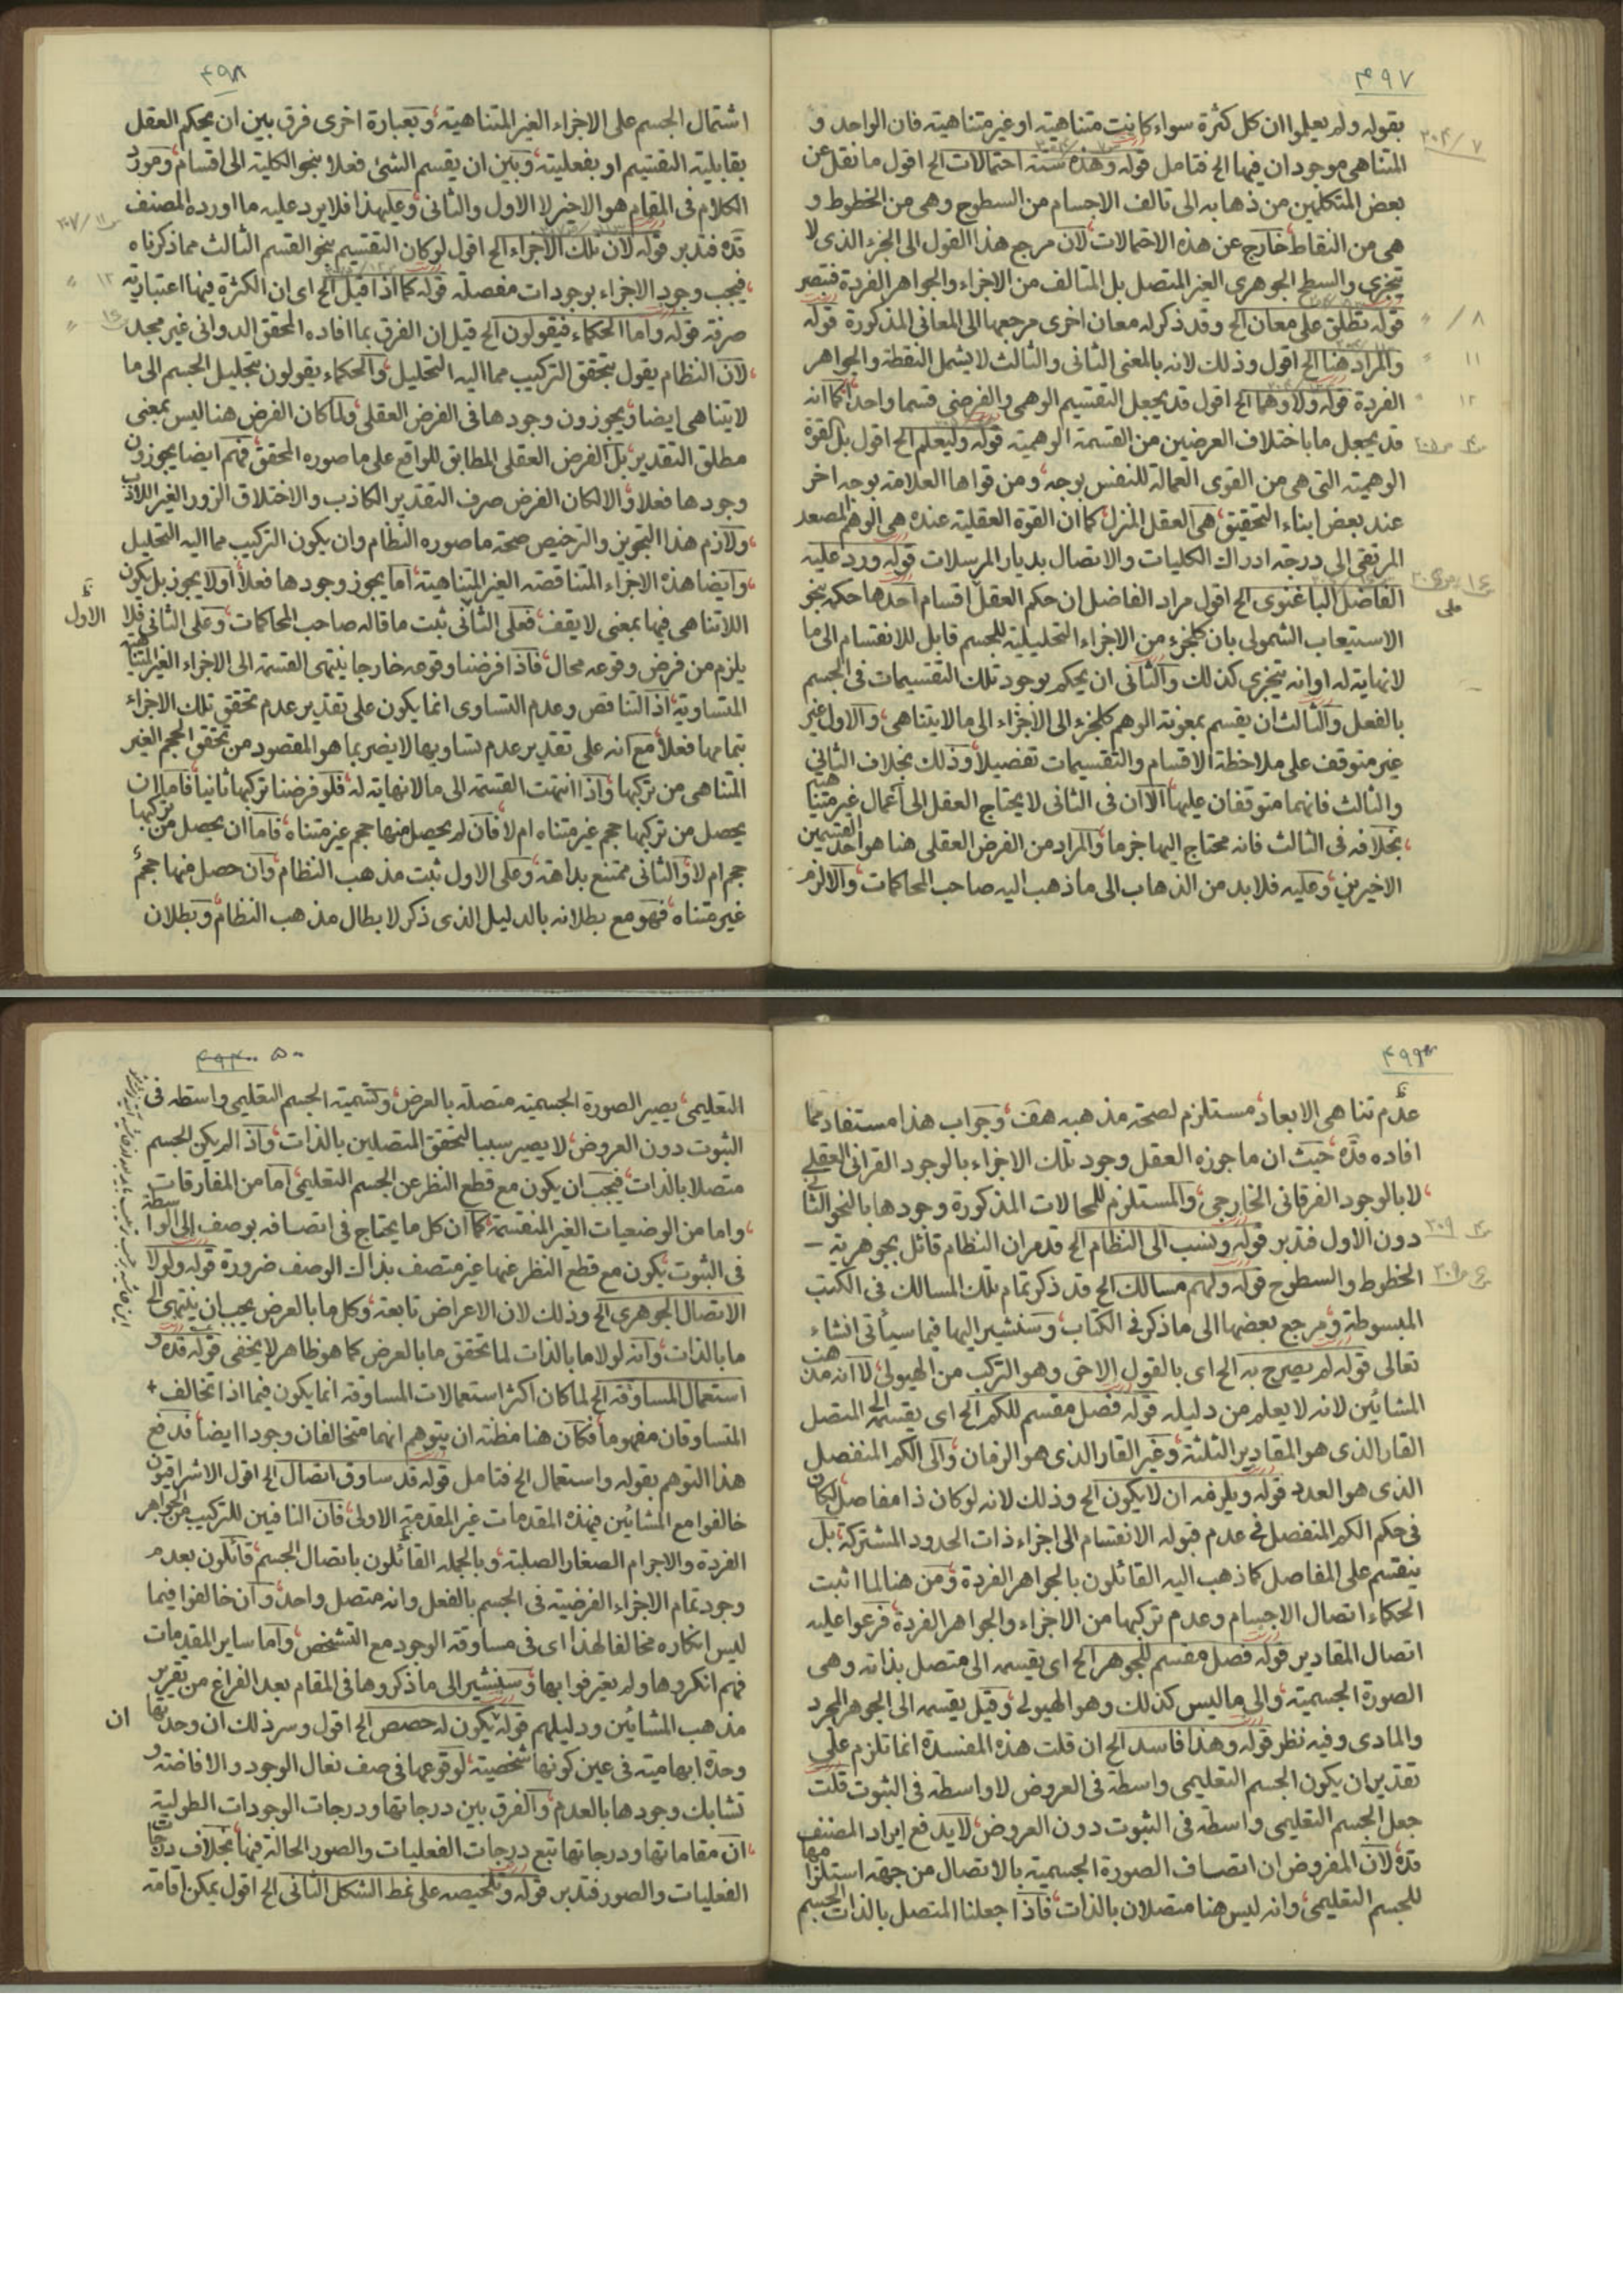 ۴۹۷
بقوله ولم يعلموا ان كل كثرة سواء كانت متناهية او غير متناهية فان الواحد و
المتناهى موجودان فيها الخ فتامل قوله وهذه ستة احتمالات الخ اقول ما نقل عن
بعض المتكلمين من ذهابه الى تالف الاجسام من السطوح وهى من الخطوط و
هى من النقاط خارج عن هذه الاحتمالات لان مرجع هذا القول الى الجزء الذى لا
يتجزى والسطح الجوهرى الغير المتصل بل المتالف من الاجزاء والجواهر الفردة فتبصر
قوله تطلق على معان الخ وقد ذكر له معان اخرى مرجعها الى المعانى المذكورة قوله
والمراد هنا الخ اقول وذلك لانه بالمعنى الثانى والثالث لا يشمل النقطة والجواهر
الفردة قوله ولا وهما الخ اقول قد يجعل التقسيم الوهمى والفرضى قسما واحدا كما انه
قد يجعل ما باختلاف العرضين من القسمة الوهمية قوله وليعلم الخ اقول بل القوة
الوهمية التى هى من القوى العمالة للنفس بوجه ومن قواها العلامة بوجه اخر
عند بعض ابناء التحقيق هى العقل المنزل كما ان القوة العقلية عنده هى الوهم المصعد
المرتقى الى درجة ادراك الكليات والاتصال بديار المرسلات قوله ورد عليه
الفاضل الباغنوى الخ اقول مراد الفاضل ان حكم العقل اقسام احدها حكمه بنحو
الاستيعاب الشمولى بان كل جزء من الاجزاء التحليلية للجسم قابل للانقسام الى ما
لا نهاية له او انه يتجزى كذلك والثانى ان يحكم بوجود تلك التقسيمات فى الجسم
بالفعل والثالث ان يقسم بمعونة الوهم كل جزء الى الاجزاء الى ما لا يتناهى والاول غير
غير متوقف على ملاحظة الاقسام والتقسيمات تفصيلا وذلك بخلاف الثانى
والثالث فانهما متوقفان عليها الا ان فى الثانى لا يحتاج العقل الى اعمال غير متناهية
بخلافه فى الثالث فانه محتاج اليها جزما والمراد من الفرض العقلى هنا هو احد القسمين
الاخيرين وعليه فلابد من الذهاب الى ما ذهب اليه صاحب المحاكمات والا لزم
۴۹۸
اشتمال الجسم على الاجزاء الغير المتناهية وبعبارة اخرى فرق بين ان يحكم العقل
بقابلية التقسيم او بفعليته وبين ان يقسم الشئ فعلا بنحو الكلية الى اقسام ومورد
الكلام فى المقام هو الاخير لا الاول والثانى وعليهذا فلا يرد عليه ما اورده المصنف
قده فتدبر قوله لان تلك الاجزاء الخ اقول لو كان التقسيم بنحو القسم الثالث مما ذكرناه
فيجب وجود الاجزاء بوجودات مفصلة قوله كما اذا قيل الخ اى ان الكثرة فيها اعتبارية
صرفة قوله واما الحكماء فيقولون الخ قيل ان الفرق بما افاده المحقق الدوانى غير مجد
لان النظام يقول بتحقق التركيب مما اليه التحليل والحكماء يقولون بتحليل الجسم الى ما
لا يتناهى ايضا ويجوزون وجودها فى الفرض العقلى ولما كان الفرض هنا ليس بمعنى
مطلق التقدير بل الفرض العقلى المطابق للواقع على ما صوره المحقق فهم ايضا يجوزون
وجودها فعلا والا لكان الفرض صرف التقدير الكاذب والاختلاق الزور الغير اللاذب
ولازم هذا التجويز والترخيص صحة ما صوره النظام وان يكون التركيب مما اليه التحليل
وايضا هذه الاجزاء المتناقصة الغير المتناهية اما يجوز وجودها فعلا او لا يجوز بل يكون
اللاتناهى فيها بمعنى لا يقف فعلى الثانى ثبت ما قاله صاحب المحاكمات وعلى الثانى فلا الاول
يلزم من فرض وقوعه محال فاذا فرضنا وقوعه خارجا ينتهى القسمة الى الاجزاء الغير المتناهية
المتساوية اذ التناقص وعدم التساوى انما يكون على تقدير عدم تحقق تلك الاجزاء
بتمامها فعلا مع انه على تقدير عدم تساويها لا يضر بما هو المقصود من تحقق الحجم الغير
المتناهى من تركبها واذا انتهت القسمة الى ما لا نهاية له فلو فرضنا تركبها ثانيا فاما ان
يحصل من تركبها حجم غير متناه ام لا فان لم يحصل منها حجم غير متناه فاما ان يحصل من تركبها
حجم ام لا والثانى ممتنع بداهة وعلى الاول ثبت مذهب النظام وان حصل منها حجم
غير متناه فهو مع بطلانه بالدليل الذى ذكر لابطال مذهب النظام وبطلان
۴۹۹
عدم تناهى الابعاد مستلزم لصحة مذهبه هف وجواب هذا مستفاد مما
افاده قده حيث ان ما جوزه العقل وجود تلك الاجزاء بالوجود القرانى العقلى
لا بالوجود الفرقانى الخارجى والمستلزم للمحالات المذكورة وجودها بالنحو الثانى
دون الاول فتدبر قوله ونسب الى النظام الخ قد مر ان النظام قائل بجوهرية
الخطوط والسطوح قوله ولهم مسالك الخ قد ذكر تمام تلك المسالك فى الكتب
المبسوطة ومرجع بعضها الى ما ذكر فى الكتاب وسنشير اليها فيما سيأتى انشاء
تعالى قوله لم يصرح به الخ اى بالقول الاخر وهو التركب من الهيولى لا انه مذهب
المشائين لانه لا يعلم من دليله قوله فصل مقسم للكم الخ اى يقسمه الى المتصل
القار الذى هو المقادير الثلثة وغير القار الذى هو الزمان والى الكم المنفصل
الذى هو العدد قوله ويلزمه ان لا يكون الخ وذلك لانه لو كان ذا مفاصل لكان
فى حكم الكم المنفصل فى عدم قبوله الانقسام الى اجزاء ذات الحدود المشتركة بل
ينقسم على المفاصل كما ذهب اليه القائلون بالجواهر الفردة ومن هنا لما اثبت
الحكماء اتصال الاجسام وعدم تركبها من الاجزاء والجواهر الفردة فرعوا عليه
اتصال المقادير قوله فصل مقسم للجوهر الخ اى يقسمه الى متصل بذاته وهى
الصورة الجسمية والى ما ليس كذلك وهو الهيولى وقيل يقسمه الى الجوهر المجرد
والمادى وفيه نظر قوله وهذا فاسد الخ ان قلت هذه المفسدة انما تلزم على
تقدير ان يكون الجسم التعليمى واسطة فى العروض لا واسطة فى الثبوت قلت
جعل الجسم التعليمى واسطة فى الثبوت دون العروض لا يدفع ايراد المصنف
قده لان المفروض ان اتصاف الصورة الجسمية بالاتصال من جهة استلزامها
للجسم التعليمى وانه ليس هنا متصلان بالذات فاذا جعلنا المتصل بالذات الجسم
۵۰۰
التعليمى يصير الصورة الجسمية متصلة بالعرض وتسمية الجسم التعليمى واسطه فى
الثبوت دون العروض لا يصير سببا لتحقق المتصلين بالذات واذا لم يكن الجسم
متصلا بالذات فيجب ان يكون مع قطع النظر عن الجسم التعليمى اما من المفارقات
واما من الوضعيات الغير المنقسمة كما ان كل ما يحتاج فى اتصافه بوصف الى الواسطة
فى الثبوت يكون مع قطع النظر عنها غير متصف بذاك الوصف ضرورة قوله ولولا
الاتصال الجوهرى الخ وذلك لان الاعراض تابعة وكل ما بالعرض يجب ان ينتهى الى
ما بالذات وانه لولا ما بالذات لما تحقق ما بالعرض كما هو ظاهر لا يخفى قوله قده و
استعمال المساوقة الخ لما كان اكثر استعمالات المساوقة انما يكون فيما اذا تخالف
المتساوقان مفهوما فكان هنا مظنة ان يتوهم انهما متخالفان وجودا ايضا فدفع
هذا التوهم بقوله واستعمال الخ فتامل قوله قد ساوق اتصال الخ اقول الاشراقيون
خالفوا مع المشائين فى هذه المقدمات غير المقدمة الاولى فان النافين للتركيب من الجواهر
الفردة والاجرام الصغار الصلبة وبالجملة القائلون باتصال الجسم قائلون بعدم
وجود تمام الاجزاء الفرضية فى الجسم بالفعل وانه متصل واحد وان خالفوا فيما
ليس انكاره مخالفا لهذا اى فى مساوقة الوجود مع التشخص واما ساير المقدمات
فهم انكروها ولم يعترفوا بها وسنشير الى ما ذكروها فى المقام بعد الفراغ من تقرير
مذهب المشائين ودليلهم قوله يكون له حصص الخ اقول وسر ذلك ان وحدتها
وحدة ابهامية فى عين كونها شخصية لوقوعها فى صف نعال الوجود والافاضة و
تشابك وجودها بالعدم والفرق بين درجاتها ودرجات الوجودات الطولية ان
ان مقاماتها ودرجاتها تتبع درجات الفعليات والصور الحالة فيها بخلاف درجات
الفعليات والصور فتدبر قوله وتلخيصه على نمط الشكل الثانى الخ اقول يمكن اقامة